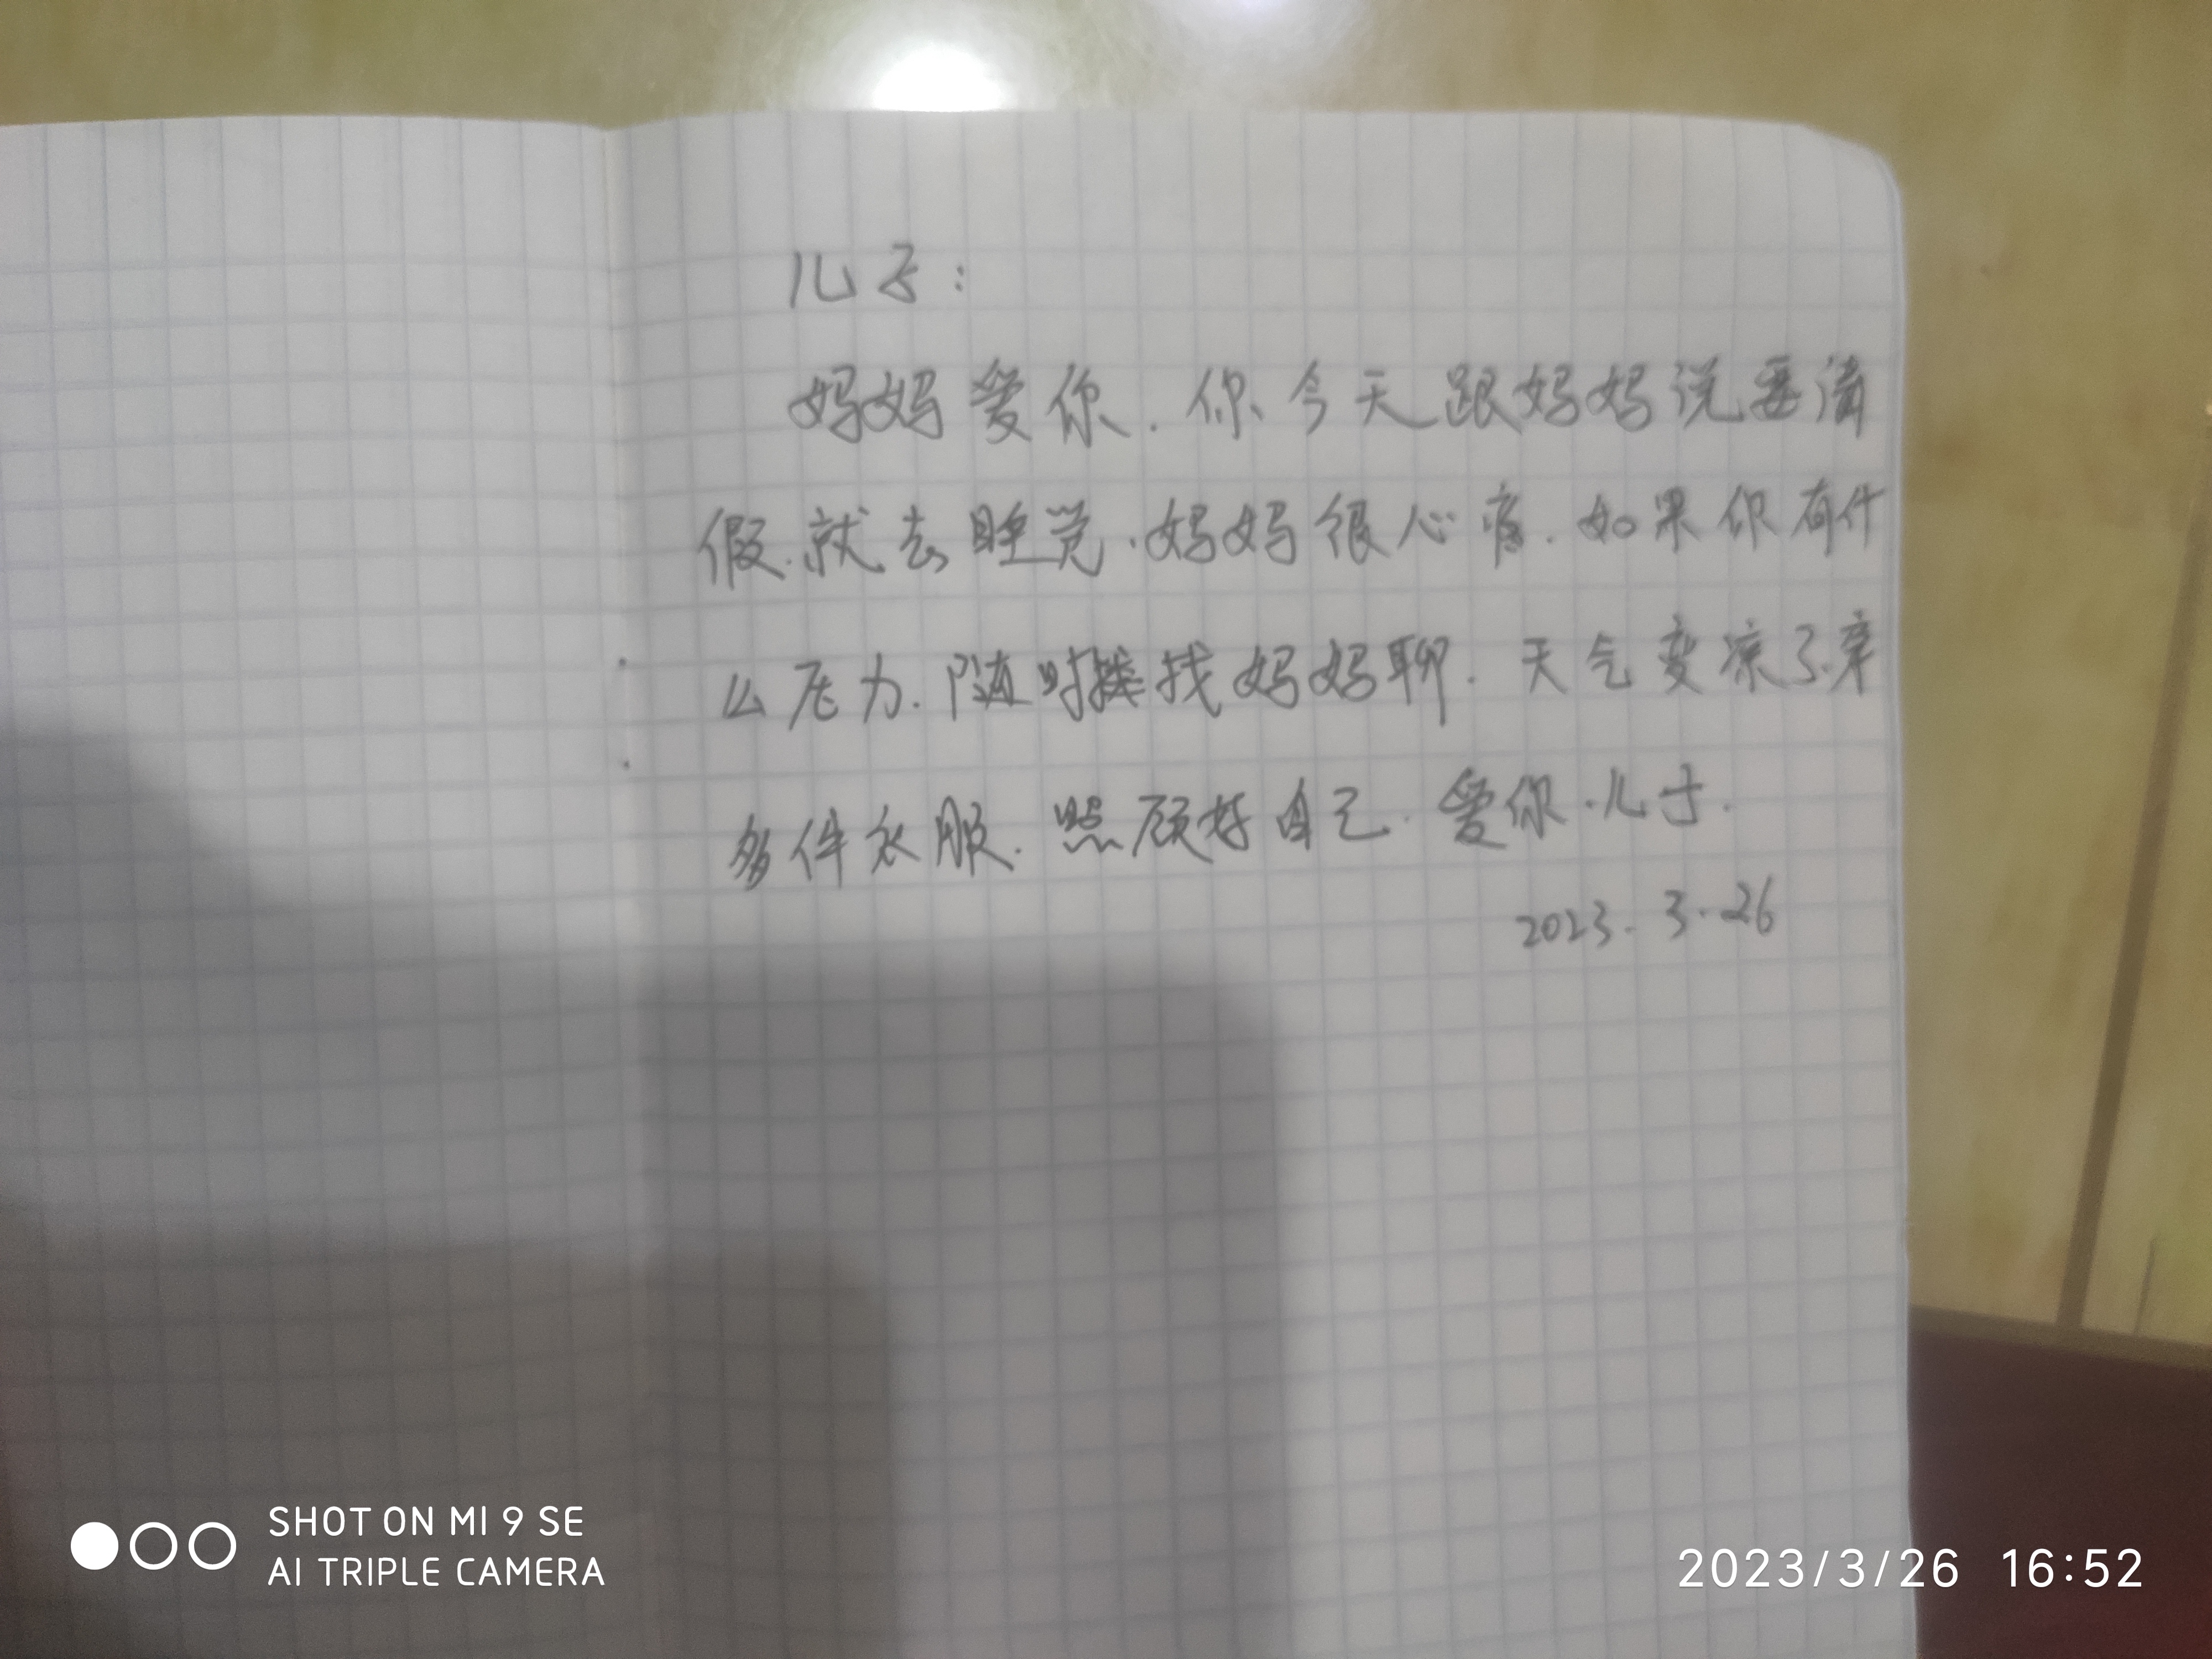 儿子:
妈妈爱你.你今天跟妈妈说要请
假.就去睡觉.妈妈很心疼.如果你有什
么压力.随时找妈妈聊.天气变凉了.穿
多件衣服.照顾好自己.爱你.儿子.
2023.3.26
SHOT ON MI 9 SE
AI TRIPLE CAMERA
2023/3/26 16:52